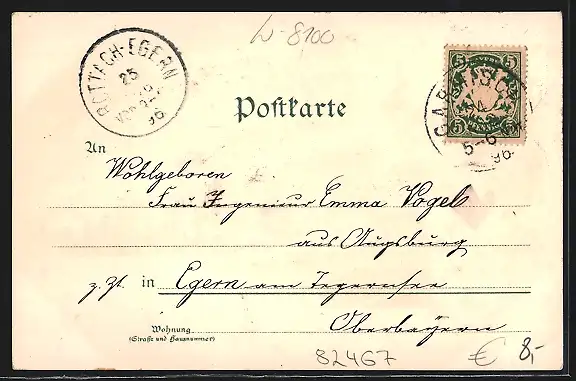 W-8100
ROTTACH-EGERN
25
96
BAYERN
5 5
PFENNIG
5 5
GARMISCH
5-6
96
Postkarte
An
Wohlgeboren
Frau Ingenieur Emma Vogel
aus Augsburg
z. Zt. in Egern am Tegernsee
Wohnung
(Straße und Hausnummer)
Oberbayern
82467
€ 8,-